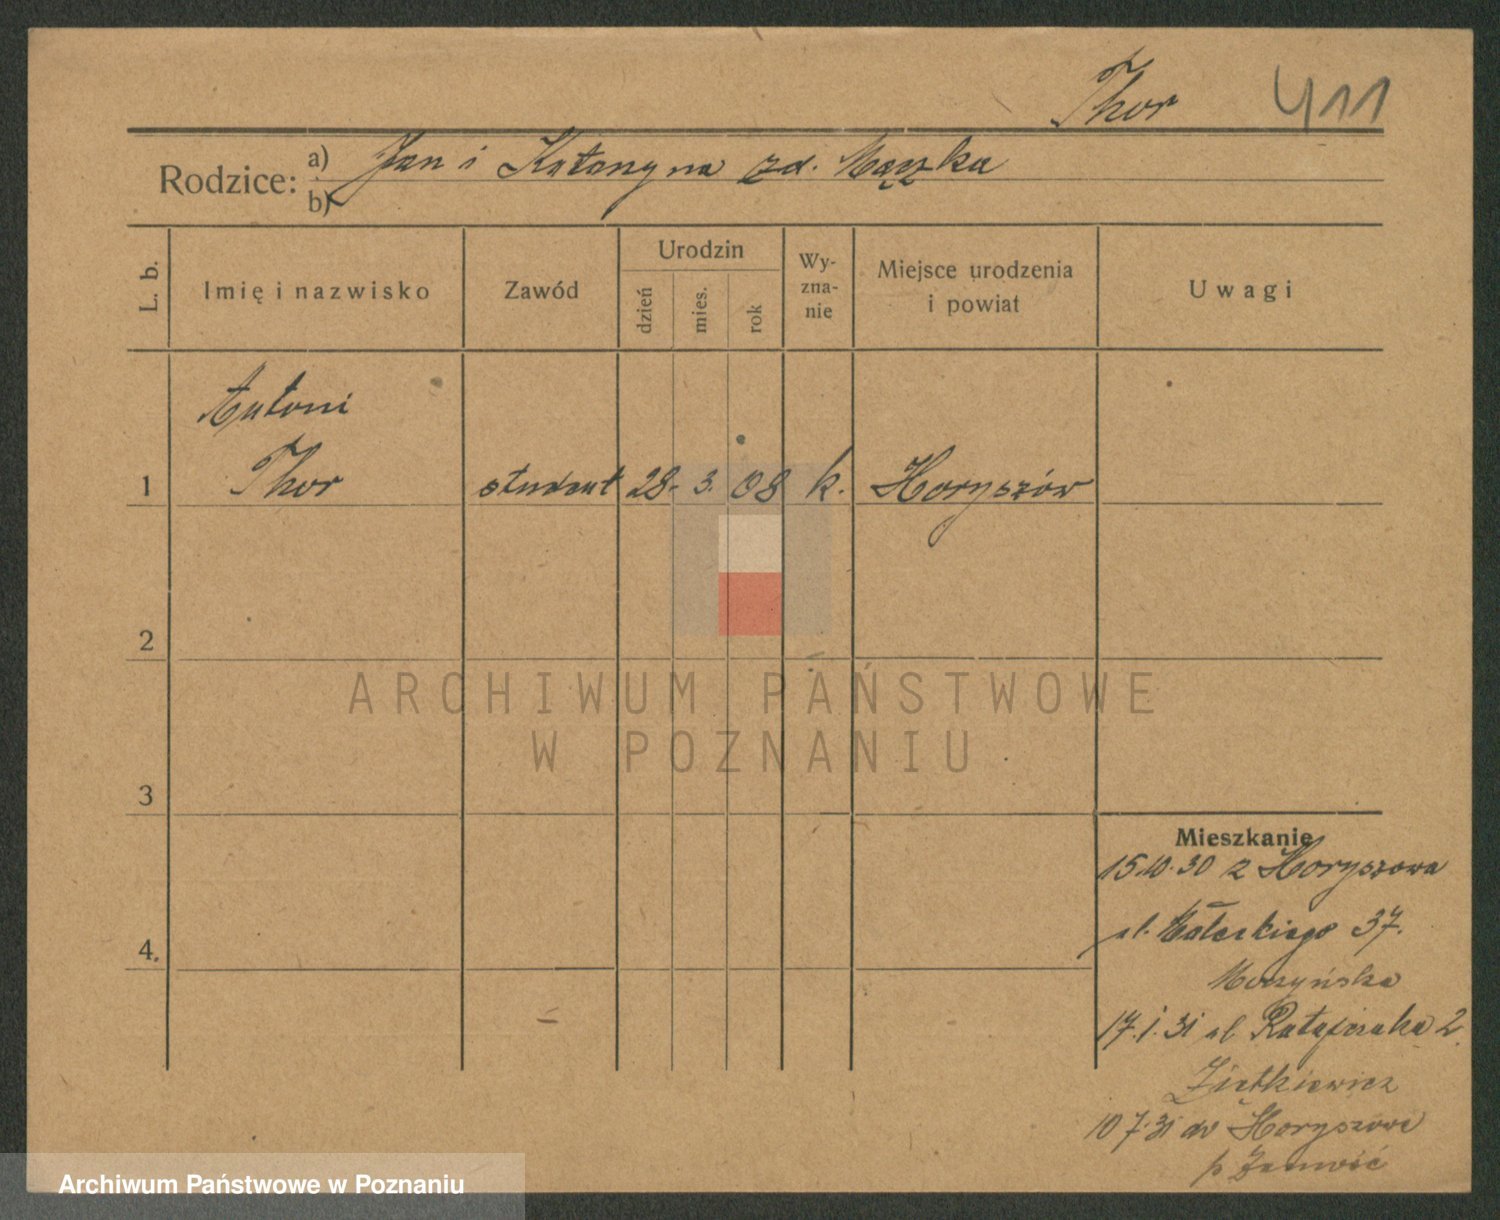 Thor 411
Rodzice: a) Jan i Katarzyna zd. Mączka
b)
L. b.
Imię i nazwisko
Zawód
Urodzin
dzień
mies.
rok
Wy-
zna-
nie
Miejsce urodzenia
i powiat
Uwagi
Antoni
1 Thor student 28. 3. 08 k. Horyszów
2
3
4.
Mieszkanie
15.10.30 z Horyszowa
ul. Małeckiego 37.
Moszyńska
17.1.31 ul Ratajczaka 2.
Ziętkiewicz
10 7.31 do Horyszowa
p Zamość
ARCHIWUM PAŃSTWOWE
W POZNANIU
Archiwum Państwowe w Poznaniu